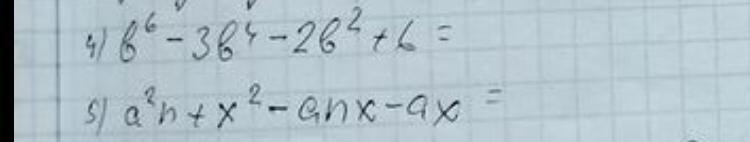 4) b⁶ - 3b⁴ - 2b² + 6 =
5) a²n + x² - anx - ax =